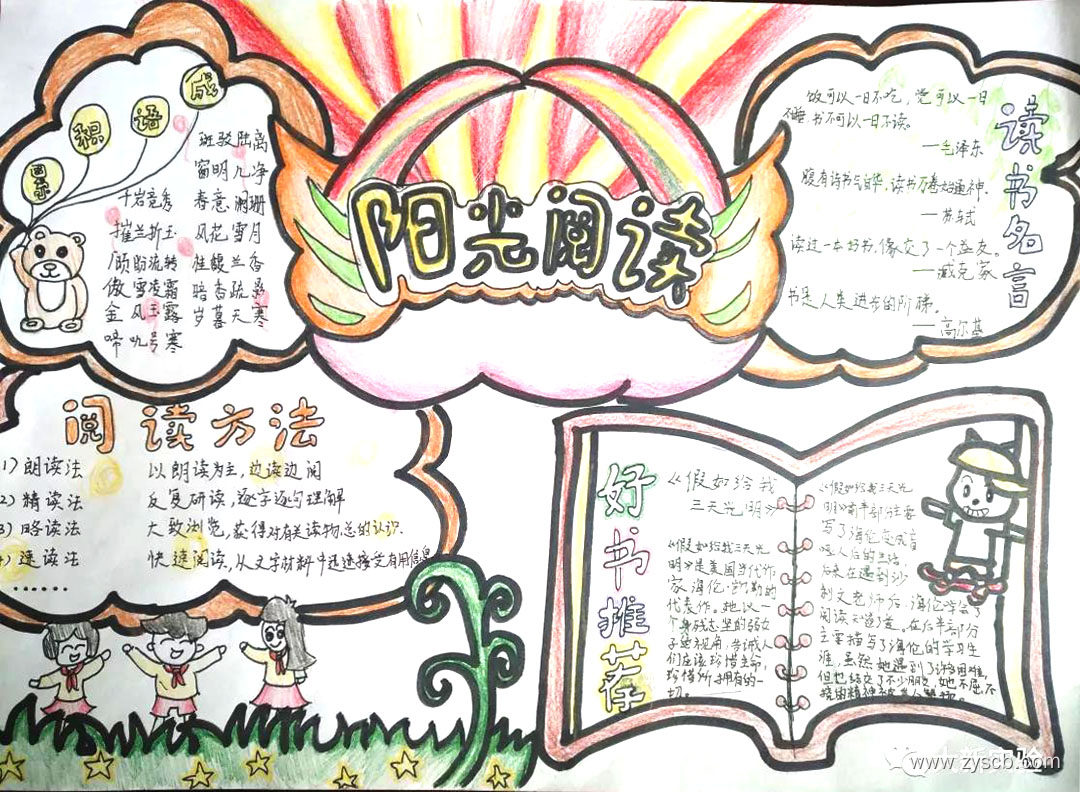 阳光阅读
成
语
积
累
斑驳陆离
窗明几净
千岩竞秀 春意阑珊
摧兰折玉 风花雪月
顾盼流转 佳馥兰香
傲雪凌霜 暗香疏
金风玉露 岁暮天寒
啼饥号寒
读书名言
饭可以一日不吃,觉可以一日
不睡,书不可以一日不读。
—毛泽东
腹有诗书气自华,读书万卷始通神.
—苏轼
读过一本好书,像交了一个益友。
—臧克家
书是人类进步的阶梯。
—高尔基
阅读方法
1)朗读法 以朗读为主,边读边阅
2)精读法 反复研读,逐字逐句理解
3)略读法 大致浏览,获得对有关读物总的认识.
4)速读法 快速阅读,从文字材料中迅速接受有用信息
......
好书推荐
《假如给我
三天光明》
《假如给我三天光
明》是美国当代作
家海伦·凯勒的
代表作。她以一
个身残志坚的弱女
子的视角,告诫人
们应该珍惜生命,
珍惜所拥有的一
切。
《假如给我三天光
明》前半部分主要
写了海伦变成盲
聋人后的生活,
后来在遇到沙
利文老师后,海伦学会了
阅读 在后半部分
主要描写了海伦的学习生
涯,虽然她遇到了许多困难,
但也结交了不少朋友,她不屈不
挠的精神被人赞扬。
www.zyscb.com